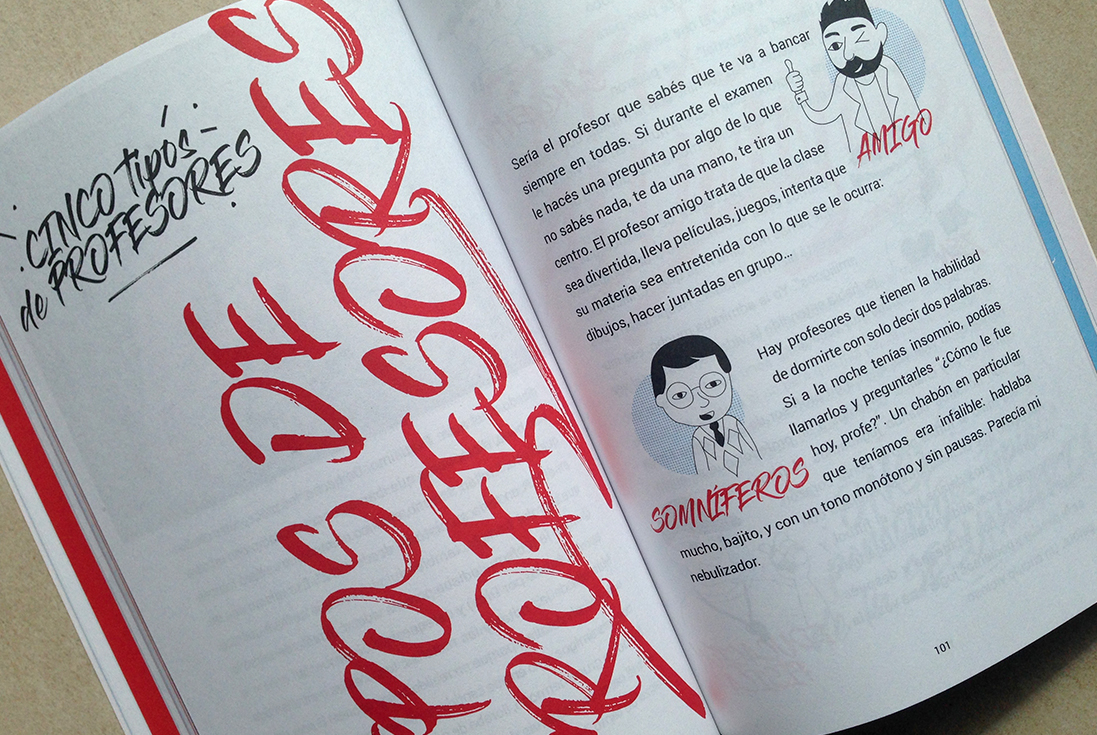 CINCO tipos
de PROFESORES
POS DE
ROFESORES
Sería el profesor que sabés que te va a bancar
siempre en todas. Si durante el examen
le hacés una pregunta por algo de lo que
no sabés nada, te da una mano, te tira un
centro. El profesor amigo trata de que la clase
sea divertida, lleva películas, juegos, intenta que
su materia sea entretenida con lo que se le ocurra:
dibujos, hacer juntadas en grupo...
AMIGO
Hay profesores que tienen la habilidad
de dormirte con solo decir dos palabras.
Si a la noche tenías insomnio, podías
llamarlos y preguntarles “¿Cómo le fue
hoy, profe?”. Un chabón en particular
que teníamos era infalible: hablaba
mucho, bajito, y con un tono monótono y sin pausas. Parecía mi
nebulizador.
SOMNÍFEROS
101